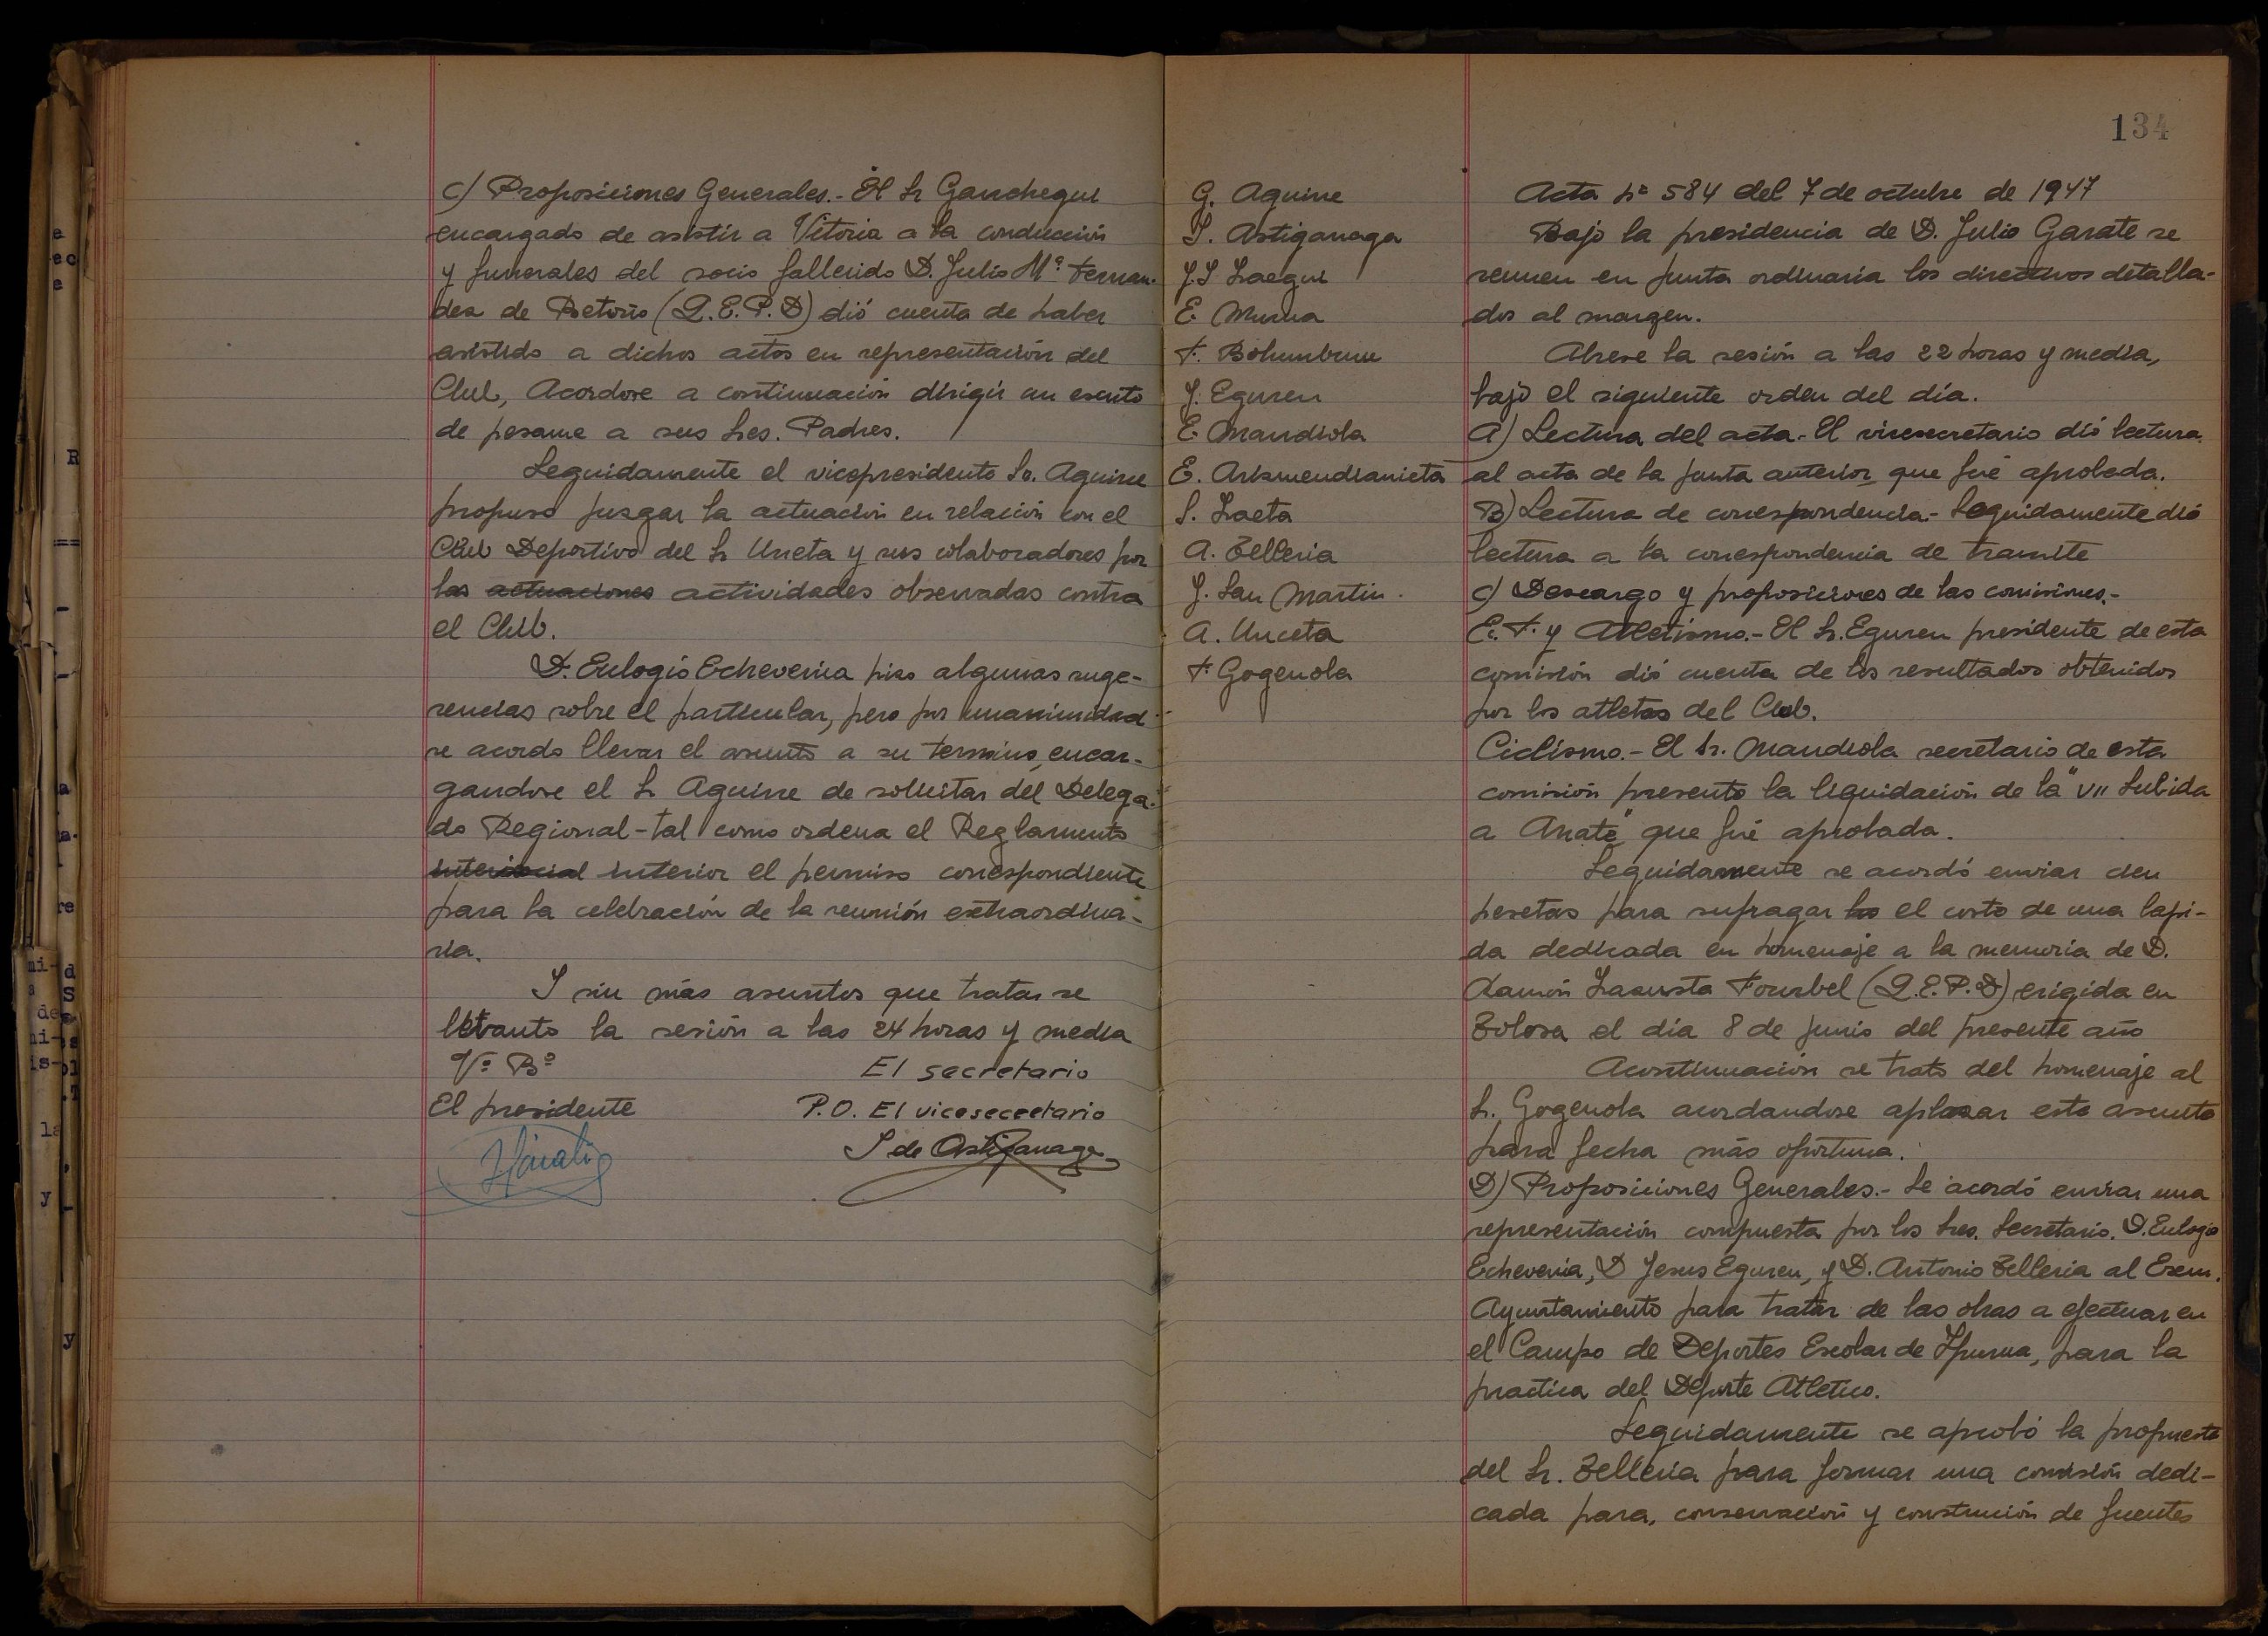 C) Proposiciones Generales.- El Sr Ganchegui
encargado de asistir a Vitoria a la conducción
y funerales del socio fallecido D. Julio Mª Fernan-
dez de Betoño (Q.E.P.D) dió cuenta de haber
asistido a dichos actos en representación del
Club, Acordose a continuación dirigir un escrito
de pesame a sus Sres. Padres.
Seguidamente el vicepresidente Sr. Aguirre
propuso juzgar la actuación en relación con el
Club Deportivo del Sr Unceta y sus colaboradores por
las actuaciones actividades observadas contra
el Club.
D. Eulogio Echeverria hizo algunas suge-
rencias sobre el particular, pero por unanimidad
se acordo llevar el asunto a su termino, encar-
gandose el Sr Aguirre de solicitar del Delega-
do Regional - tal como ordena el Reglamento
interior el permiso correspondiente
para la celebración de la reunión extraordina-
ria.
Y sin más asuntos que tratar se
levanto la sesión a las 24 horas y media
Vº Bº El secretario
El presidente P.O. El vicesecretario
Garate S de Astigarraga
134
G. Aguirre
S. Astigarraga
E. Murua
J. Eguren
E. Mandiola
E. Arizmendiarrieta
S. Zaeta
A. Telleria
J. San Martin.
A. Unceta
F. Gogenola
Acta nº 584 del 7 de octubre de 1947
Bajo la presidencia de D. Julio Garate se
reunen en junta ordinaria los directivos detalla-
dos al margen.
Abrese la sesión a las 22 horas y media,
bajo el siguiente orden del día.
A) Lectura del acta.- El vicesecretario dió lectura
al acta de la junta anterior, que fué aprobada.
B) Lectura de correspondencia.- Seguidamente dió
lectura a la correspondencia de tramite
C) Descargo y proposiciones de las comisiones.-
E. F. y Atletismo.- El Sr. Eguren presidente de esta
comisión dió cuenta de los resultados obtenidos
por los atletas del Club.
Ciclismo.- El Sr. Mandiola secretario de esta
comisión presento la liquidación de la "VII Subida
a Arrate" que fué aprobada.
Seguidamente se acordó enviar cien
pesetas para sufragar el costo de una lapi-
da dedicada en homenaje a la memoria de D.
Ramón (Q.E.P.D) erigida en
Tolosa el día 8 de junio del presente año
Acontinuación se trato del homenaje al
Sr. Gogenola acordandose aplazar este asunto
para fecha más oportuna.
D) Proposiciones Generales.- Se acordó enviar una
representación compuesta por los Sres. Secretario. D. Eulogio
Echeverria, D Jesus Eguren, y D. Antonio Telleria al Excm.
Ayuntamiento para tratar de las obras a efectuar en
el Campo de Deportes Escolar de Ypurua, para la
practica del Deporte Atletico.
Seguidamente se aprobó la propuesta
del Sr. Telleria para formar una comisión dedi-
cada para, conservación y construción de fuentes